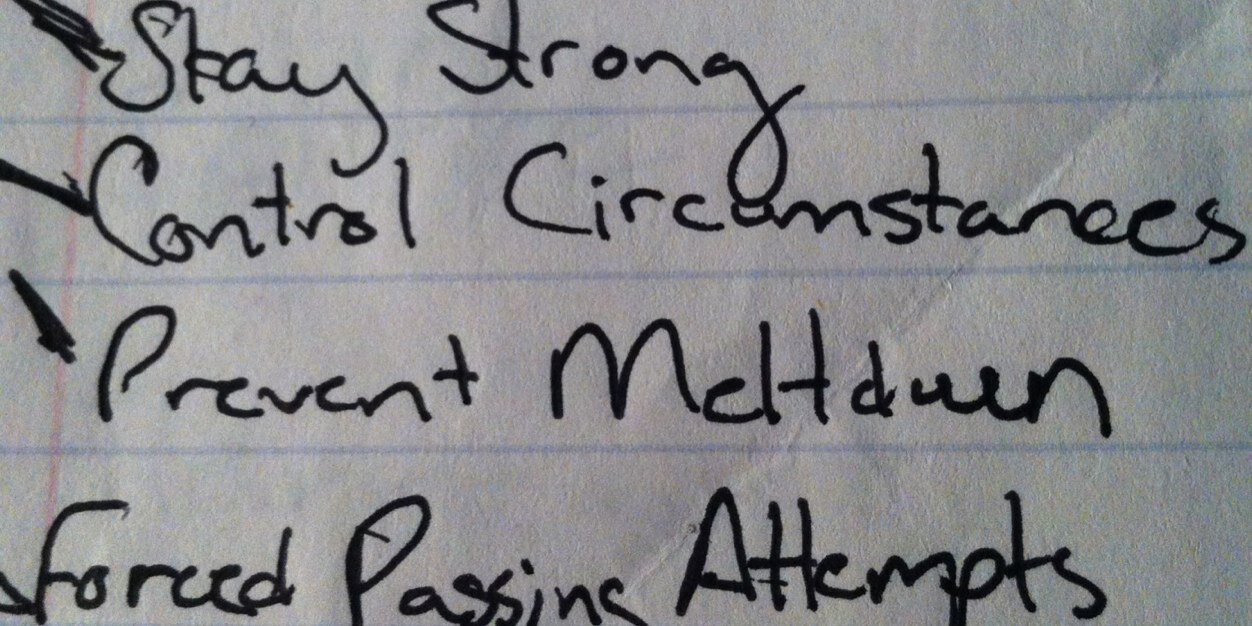 Stay Strong
Control Circumstances
Prevent Meltdown
Forced Passing Attempts